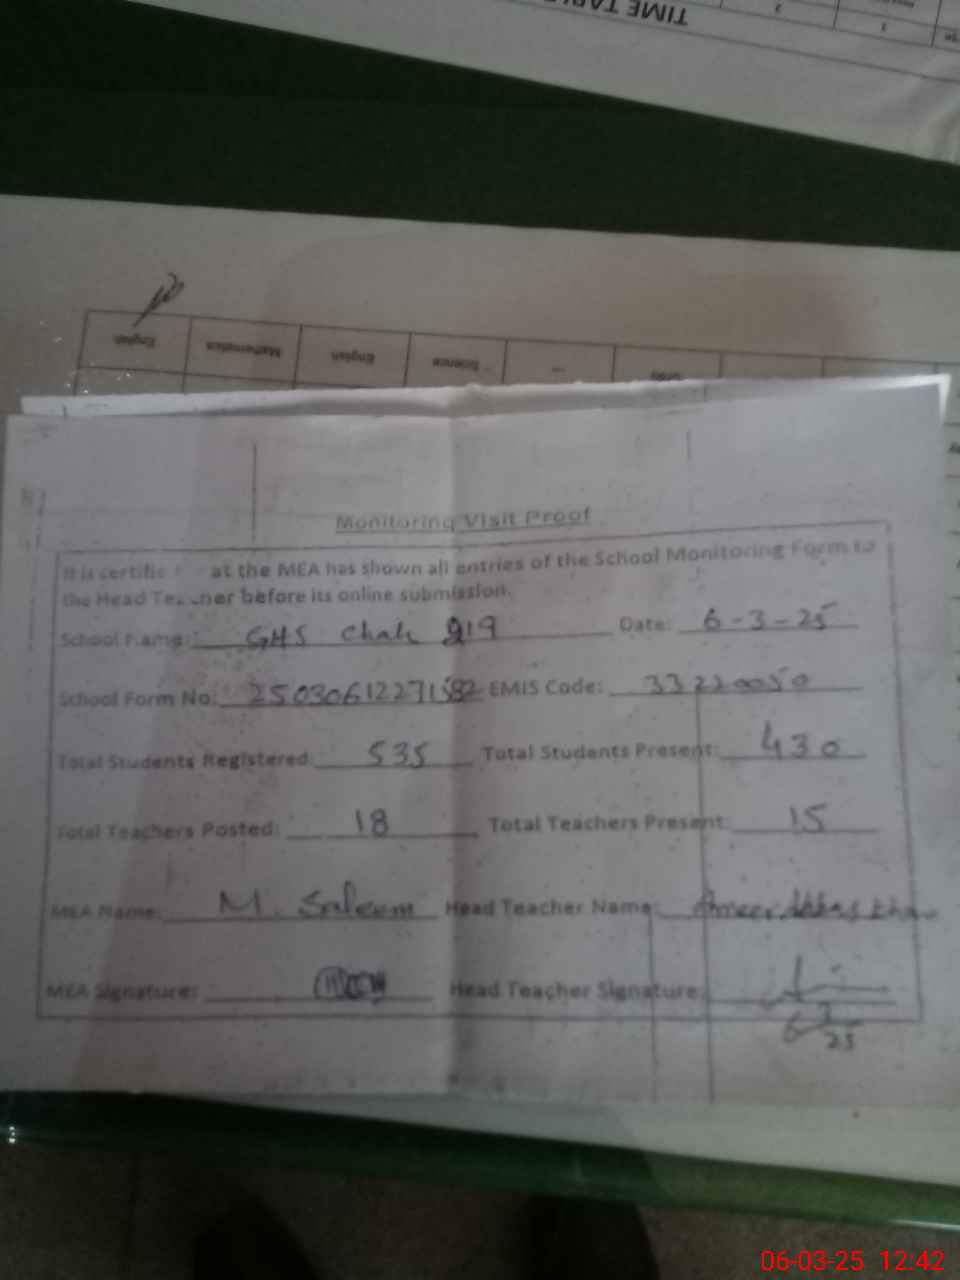 TIME TAB
2
1
English Mathematics English Science
Monitoring Visit Proof
It is certifie at the MEA has shown all entries of the School Monitoring Form to
the Head Teacher before its online submission.
School Name: GHS Chak 219 Date: 6-3-25
School Form No: 250306122711582 EMIS Code: 33220050
Total Students Registered: 535 Total Students Present: 430
Total Teachers Posted: 18 Total Teachers Present: 15
MEA Name: M. Saleem Head Teacher Name: Ameer Abbas Khan
MEA Signature: Head Teacher Signature:
6 3
25
06-03-25 12:42